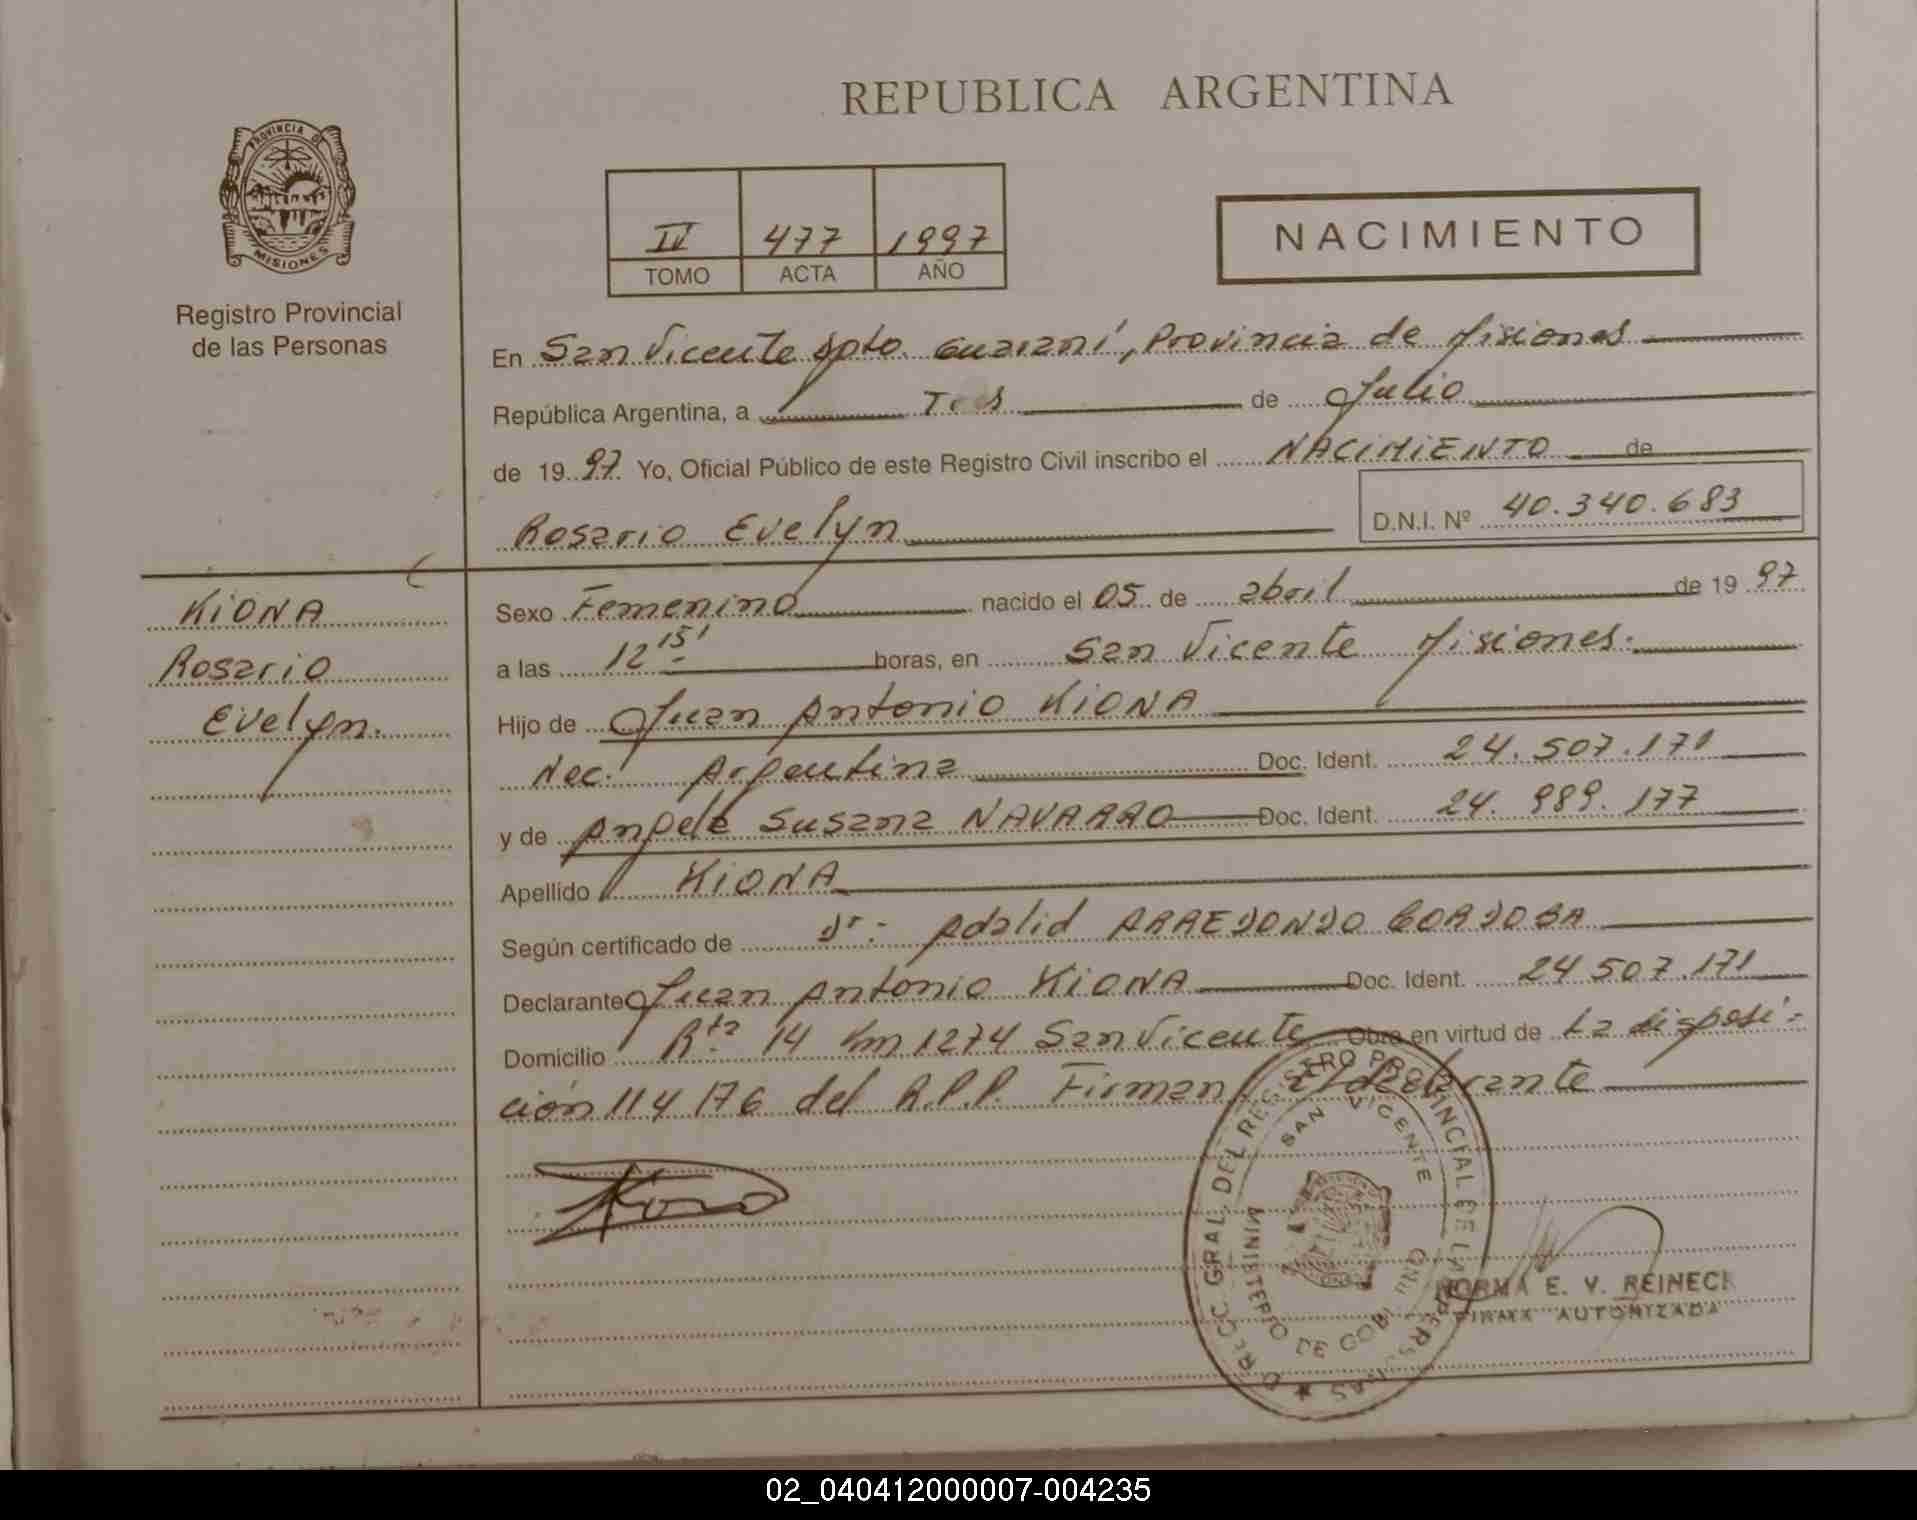 REPUBLICA ARGENTINA
PROVINCIA DE
MISIONES
Registro Provincial
de las Personas
IV 477 1997
TOMO ACTA AÑO
NACIMIENTO
En San Vicente Dpto. Guaraní, Provincia de Misiones
República Argentina, a Tres de Julio
de 1997. Yo, Oficial Público de este Registro Civil inscribo el NACIMIENTO de
Rosario Evelyn D.N.I. Nº 40.340.683
KIONA
Rosario
Evelyn.
Sexo Femenino nacido el 05 de abril de 1997
a las 12 15' horas, en San Vicente Misiones.
Hijo de Juan Antonio KIONA
Nac. Argentina Doc. Ident. 24.507.171
y de Angela Susana NAVARRO Doc. Ident. 24.989.177
Apellido KIONA
Según certificado de Dr: Adalid ARREDONDO CORDOBA
Declarante Juan Antonio KIONA Doc. Ident. 24.507.171
Domicilio Rta 14 Km 1274 San Vicente Obra en virtud de La disposi-
ción 114/76 del R.P.P. Firman el declarante
Kiona
DIRECC. GRAL. DEL REGISTRO PROVINCIAL DE LAS PERSONAS
SAN VICENTE
MINISTERIO DE GOBIERNO
NORMA E. V. REINECK
FIRMA AUTORIZADA
02_040412000007-004235